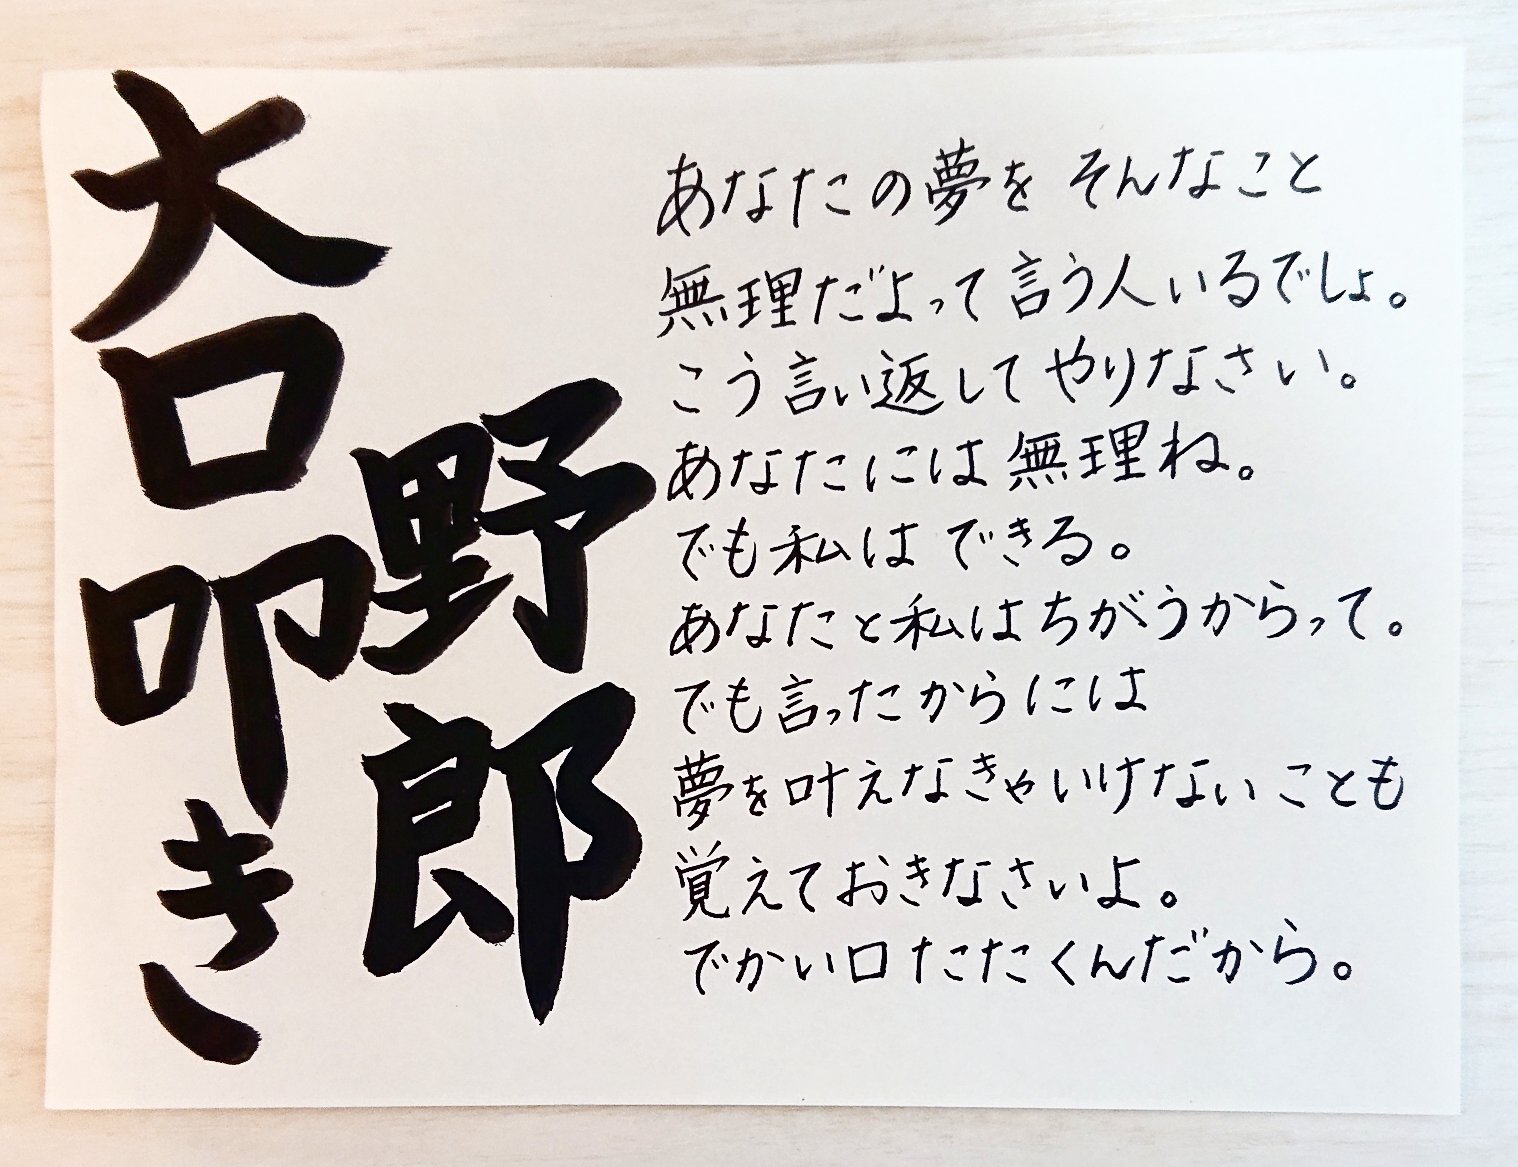 大口叩き
野郎
あなたの夢を そんなこと
無理だよって言う人いるでしょ。
こう言い返してやりなさい。
あなたには無理ね。
でも私はできる。
あなたと私はちがうからって。
でも言ったからには
夢を叶えなきゃいけないことも
覚えておきなさいよ。
でかい口たたくんだから。